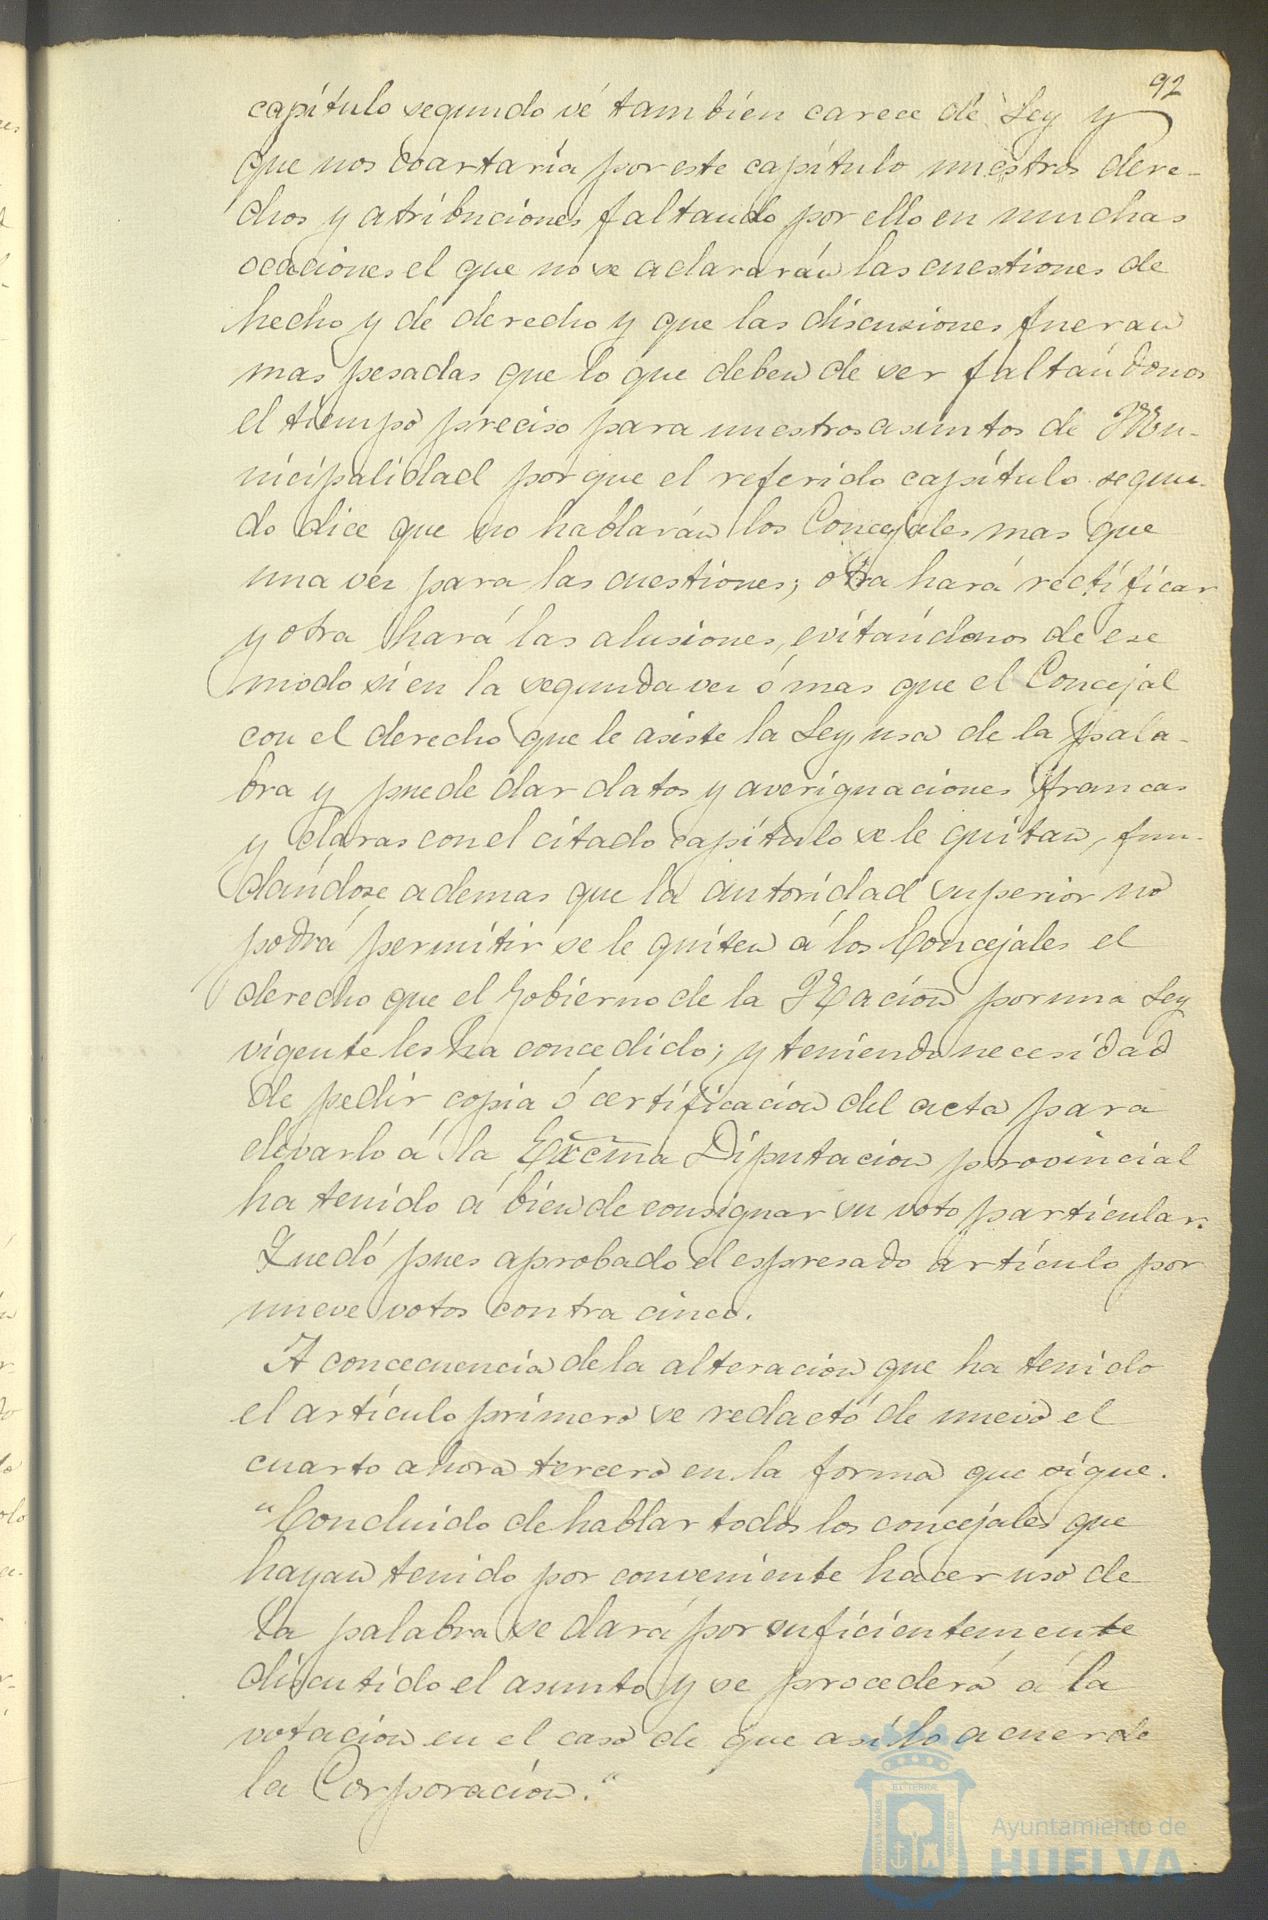 92
capítulo segundo sé tambien carece de Ley y
que nos coartaría por este capítulo nuestros dere-
chos y atribuciones faltando por ello en muchas
ocaciones el que no se aclararán las cuestiones de
hecho y de derecho y que las discusiones fueran
mas pesadas que lo que deben de ser faltándonos
el tiempo preciso para nuestros asuntos de Mu-
nicipalidad porque el referido capítulo segun-
do dice que no hablarán los Concejales mas que
una vez para las cuestiones; otra hará rectificar
y otra hará las alusiones, evitándonos de ese
modo si en la segunda vez ó mas que el Concejal
con el derecho que le asiste la Ley, usa de la pala-
bra y puede dar datos y averiguaciones francas
y claras con el citado capítulo se le quitan, fun-
dándose ademas que la autoridad superior no
podrá permitir se le quiten á los Concejales el
derecho que el Gobierno de la Nacion por una Ley
vigente les ha concedido; y teniendo necesidad
de pedir copia ó certificacion del acta para
elevarlo á la Excma Diputacion provincial
ha tenido á bien de consignar su voto particular.
Quedó pues aprobado el espresado artículo por
nueve votos contra cinco.
A concecuencia de la alteracion que ha tenido
el artículo primero se redactó de nuevo el
cuarto ahora tercero en la forma que sigue.
"Concluido de hablar todos los concejales que
hayan tenido por conveniente hacer uso de
la palabra se dará por suficientemente
discutido el asunto y se procederá á la
votacion en el caso de que así lo acuerde
la Corporación."
Ayuntamiento de
HUELVA